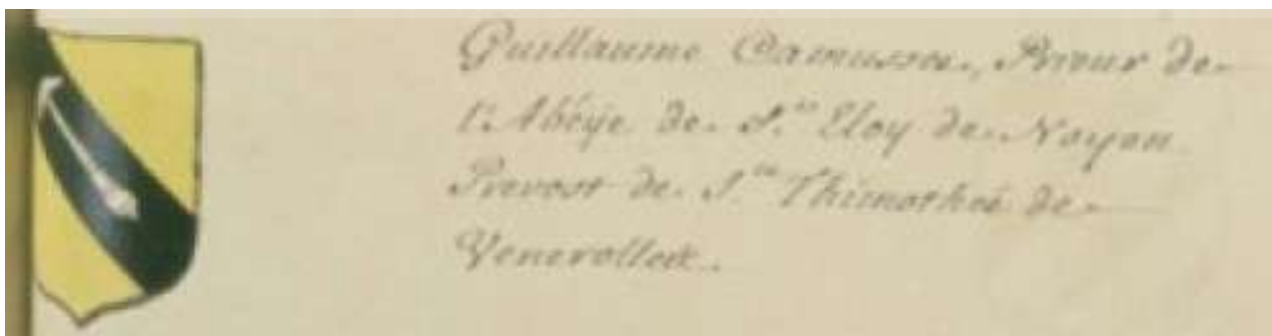 Guillaume Camusson, Prieur de
l'Abéÿe de S.^t Eloy de Noyon
Prevost de S.^t Thimothée de
Venerolles.